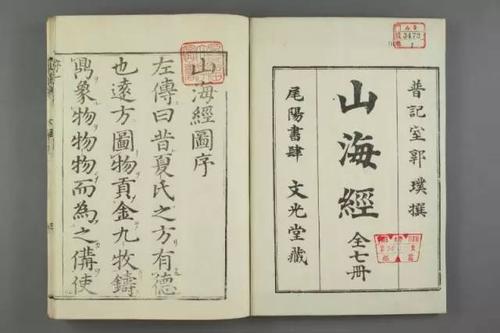 晉記室郭璞撰
山海經
全七冊
尾陽書肆 文光堂藏
3479
1
山海經圖序
左傳曰昔夏氏之方有德
也遠方圖物貢金九牧鑄
鼎象物物物而為之備使